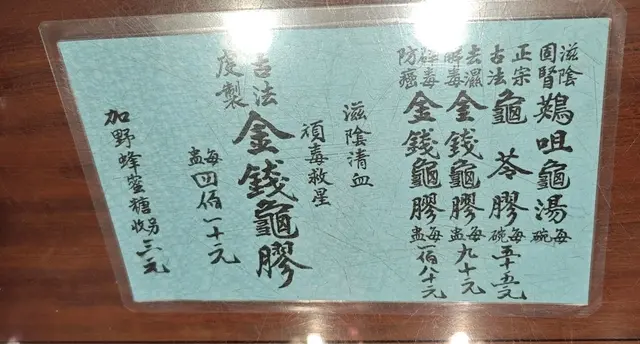 滋陰固腎咀龜湯每碗
正宗古法龜苓膠每碗五十五元
去濕解毒金錢龜膠每盅九十元
毒防癌金錢龜膠每盅一佰八十元
滋陰清血
頑毒救星
古法虔製金錢龜膠
每盅四佰一十元
加野蜂蜜糖另收三元